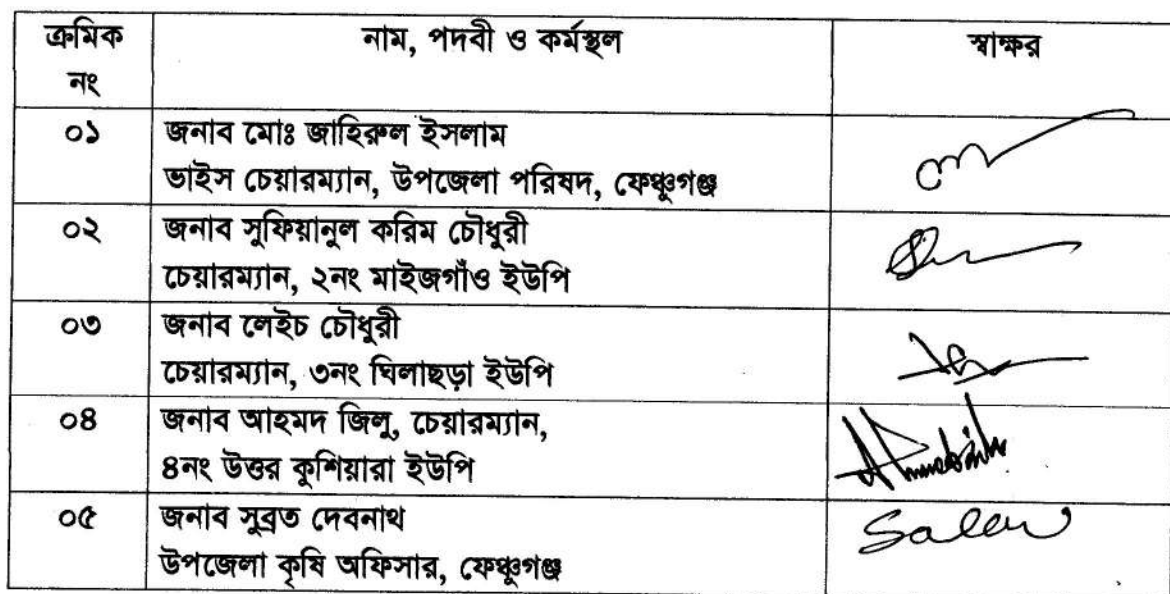 ক্রমিক নং নাম, পদবী ও কর্মস্থল স্বাক্ষর
০১ জনাব মোঃ জাহিরুল ইসলাম
ভাইস চেয়ারম্যান, উপজেলা পরিষদ, ফেঞ্চুগঞ্জ
০২ জনাব সুফিয়ানুল করিম চৌধুরী
চেয়ারম্যান, ২নং মাইজগাঁও ইউপি
০৩ জনাব লেইচ চৌধুরী
চেয়ারম্যান, ৩নং ঘিলাছড়া ইউপি
০৪ জনাব আহমদ জিলু, চেয়ারম্যান,
৪নং উত্তর কুশিয়ারা ইউপি
০৫ জনাব সুব্রত দেবনাথ
উপজেলা কৃষি অফিসার, ফেঞ্চুগঞ্জ